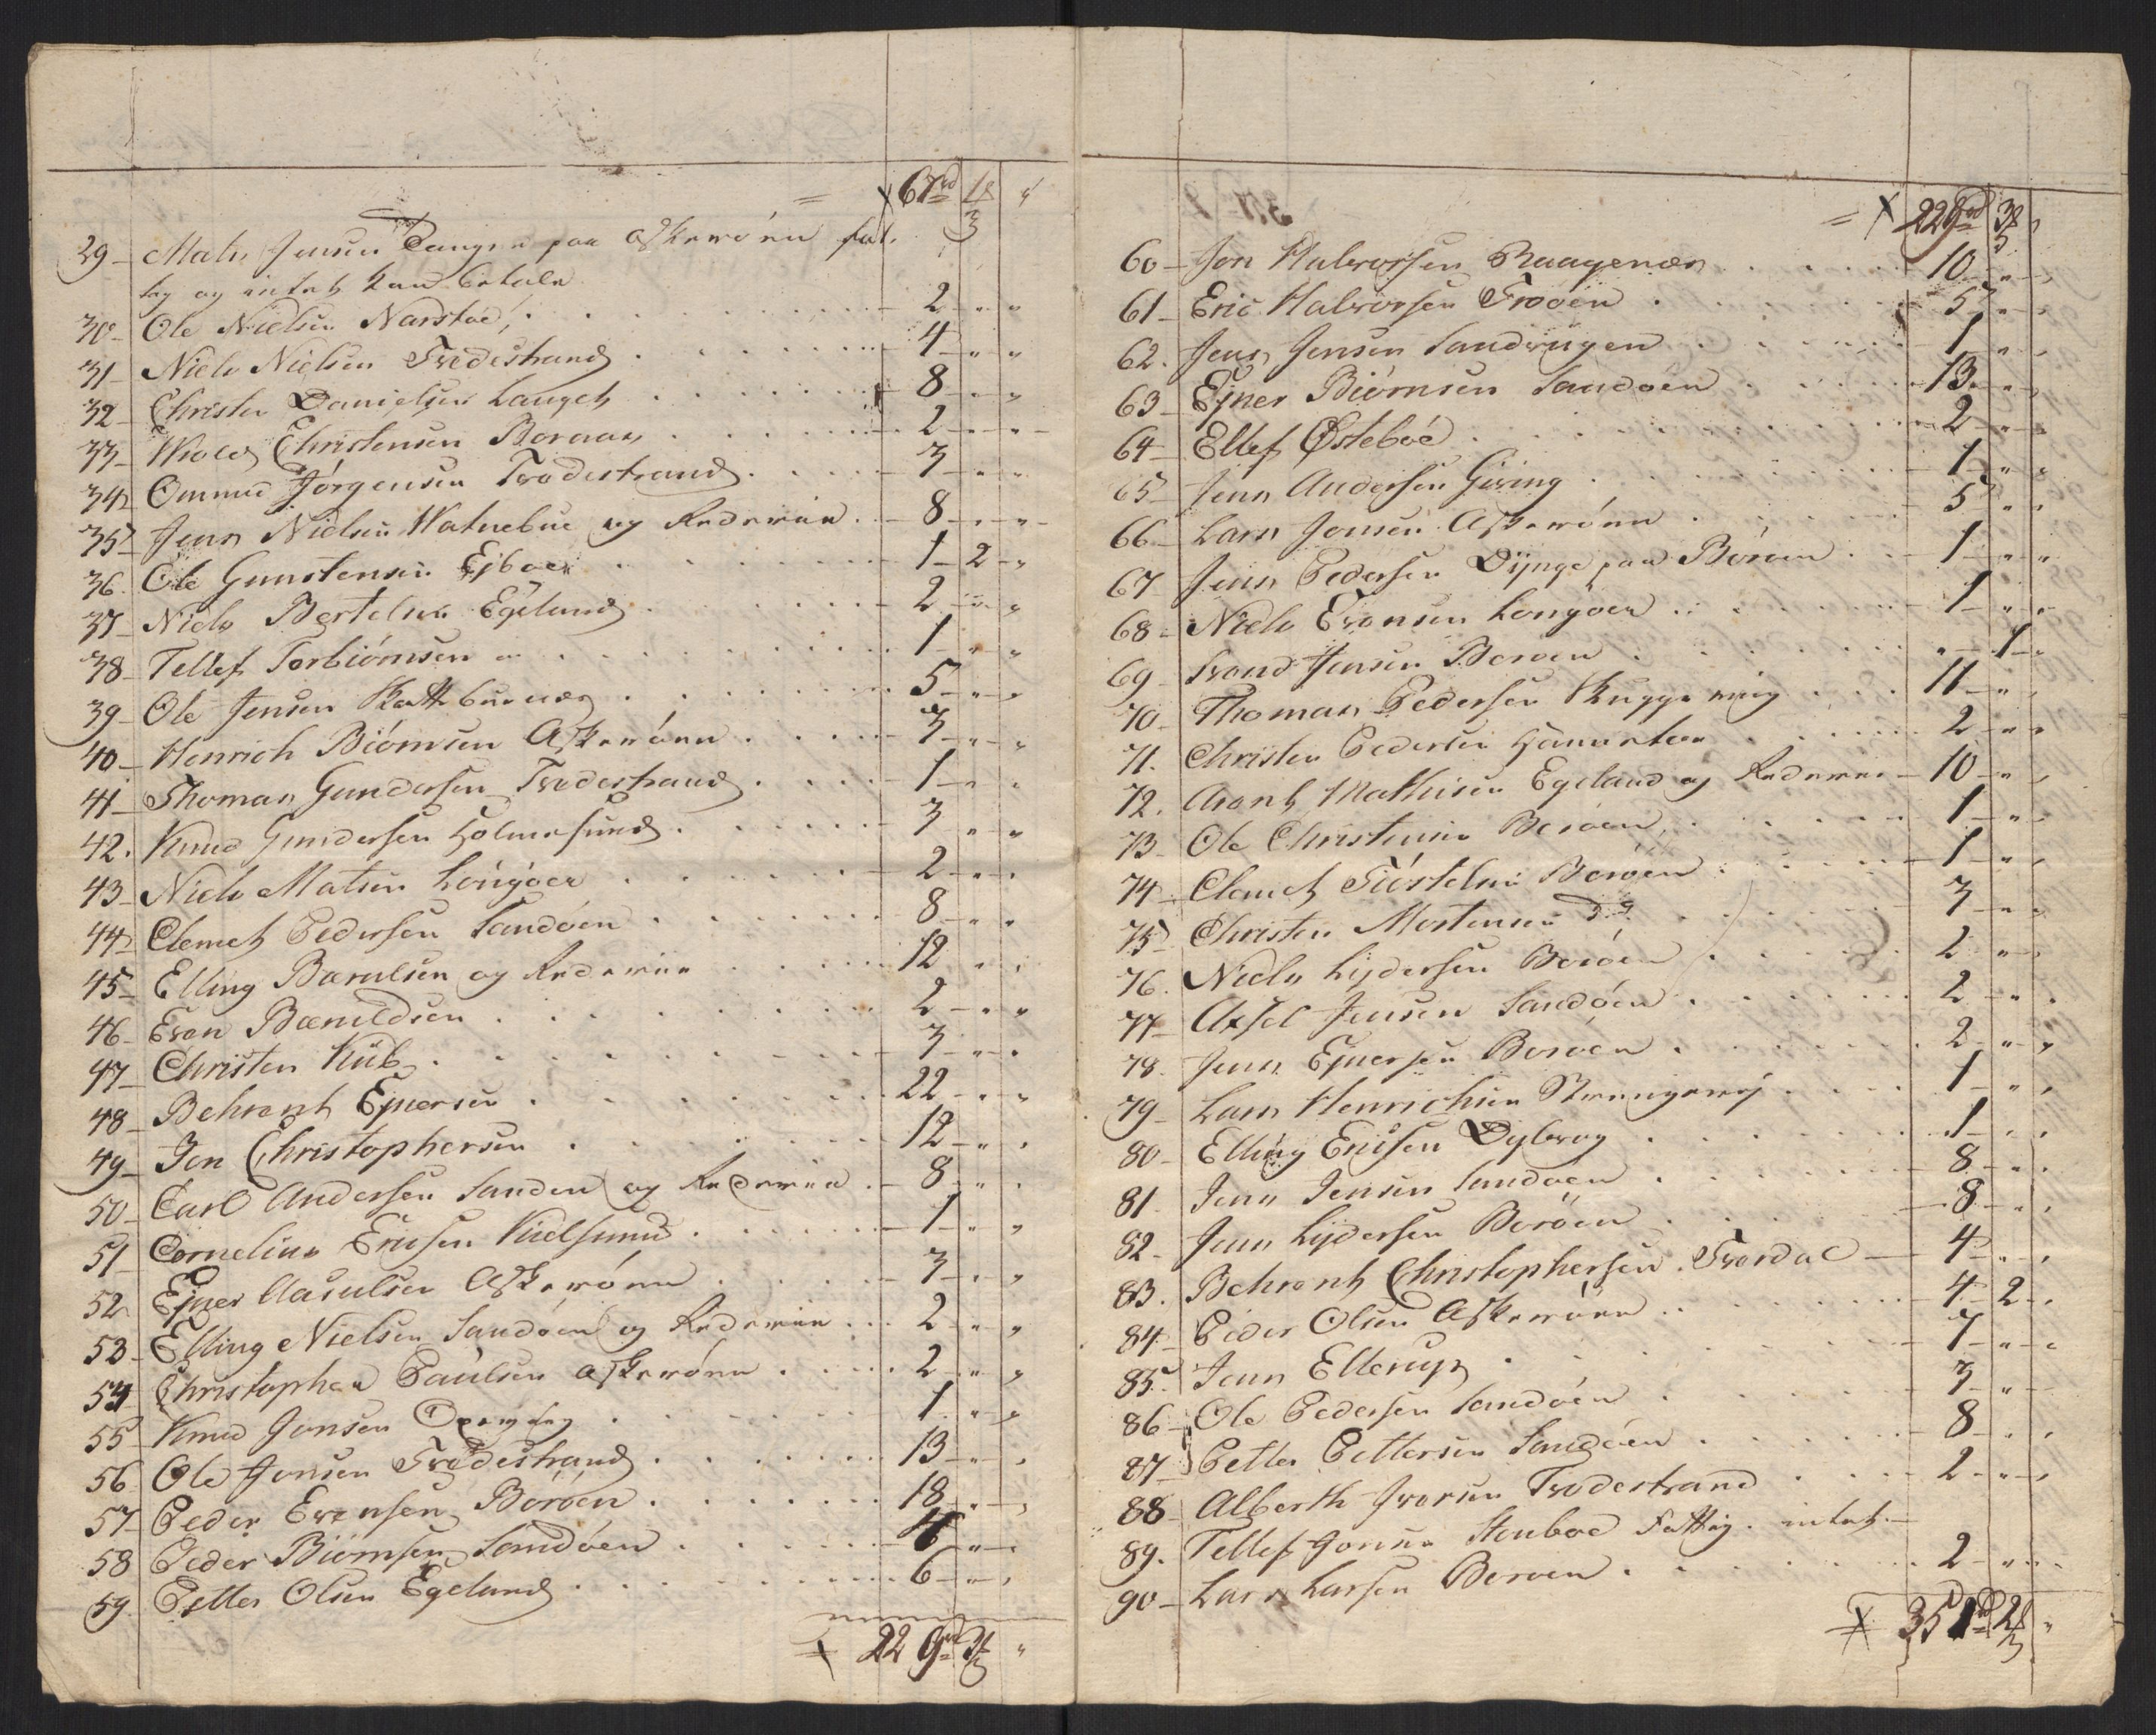 = X 67rd 1 ß "
29 - Mats Jensen Dangen paa Askerøen fat.
tig og intet kan betale
30 - Ole Nielsen Narstad, . . . 2 - " - "
31 - Niels Nielsen Tvedestrand . . . 4 - " - "
32 - Christen Danielsen Lauget . . . 8 - " - "
33 - Christensen Boraas . . . 2 - " - "
34 - Ommund Jörgensen Tvedestrand . . . 3 - " - "
35 - Jens Nielsen Watnebue og Rederie . . 8 - " - "
36. Ole Gunstensen Ejboe . . . 1 - 2 - "
37 - Niels Bertelsen Egeland . . . 2 - " - "
38 - Tellef Torbiörnsen . . . 1 - " - "
39 - Ole Jensen Kattbunæs . . . 5 - " - "
40 - Henrich Biörnsen Askeröen . . . 3 - " - "
41 - Thomas Gundersen Tvedestrand . . . 1 - " - "
42. Knud Gundersen Holmesund . . . 3 - " - "
43 - Niels Matsen Longöen . . . 2 - " - "
44 - Clemet Pedersen Sandöen . . . 8 - " - "
45 - Elling Bærulsen og Rederie . . . 12 - " - "
46 - Even Bæruldsen . . . 2 - " - "
47 - Christen Küb . . . 3 - " - "
48 - Behrent Ejnersen . . . 22 - " - "
49 - Jon Christophersen . . . 12 - " - "
50 - Carl Andersen Sanden og Rederie . . 8 - " - "
51 - Cornelius Ericsen Kielsund . . . 1 - " - "
52 Ejner Aasulsen Askeröen . . . 3 - " - "
53 - Elling Nielsen Sandöen og Rederie . . 2 - " - "
54 Christopher Paulsen Askeröen . . . 2 - " - "
55 - Knud Jonsen . . . 1 - " - "
56 Ole Jonsen Tvedestrand . . . 13 - " - "
57 - Peder Evensen Boröen . . . 18 - " - "
58 Peder Biörnsen Sandöen . . . 4 - " - "
59. Petter Olsen Egeland . . . 6 - " - "
X 229rd 3 ß "
= X 229rd 3 ß "
60 - Jon Halvorsen Raagenæs . . . 10 - " - "
61 - Eric Halvorsen Froöen . . . 5 - " - "
62. Jens Jensen Sandvigen . . . 1 - " - "
63 - Ejner Biörnsen Sandöen . . . 13 - " - "
64 - Ellef Østeboe . . . 2 - " - "
65 - Jens Andersen Giving . . . 1 - " - "
66 - Lars Jensen Askeröen . . . 5 - " - "
67 Jens Pedersen Dÿnge paa Böröen . . 1 - " - "
68 - Niels Evensen Longöen . . . 1 - " - "
69 - Trond Jensen Boroen . . . " - 1 - "
70 - Thomas Pedersen Skuggevig . . . 11 - " - "
71. Christen Pedersen . . . 2 - " - "
72. Arent Mathisen Egeland og Rederie - 10 - " - "
73 - Ole Christensen Boröen . . . 1 - " - "
74 - Clemet Tiöstelsen Boröen . . . 1 - " - "
75 Christen Mortensen do . . . 3 - " - "
76. Niels Lydersen Boröen . . . 2 - " - "
77 - Axsel Jensen Sandöen . . . 2 - " - "
78. Jens Ejnersen Boröen . . . 2 - " - "
79 - Lars Henrichsen . . . 1 - " - "
80 - Elling Ericsen Dybvog . . . 1 - " - "
81 - Jens Jensen Sandöen . . . 8 - " - "
82 - Jens Lydersen Boröen . . . 8 - " - "
83. Behrent Christophersen Tverdal - 4 - " - "
84 - Peder Olsen Askeröen . . . 4 - 2 - "
85 - Jens Ellerup . . . 7 - " - "
86 - Ole Pedersen Sandöen . . . 3 - " -
87 - Petter Pettersen Sandöen . . . 8 - " - "
88 - Alberth Iversen Tvedestrand . . . 2 - " - "
89. Tellef Stenboe Fattig. intet. -
90 - Lars Larsen Boroen . . . 2 - " - "
X 351rd 2 ß "